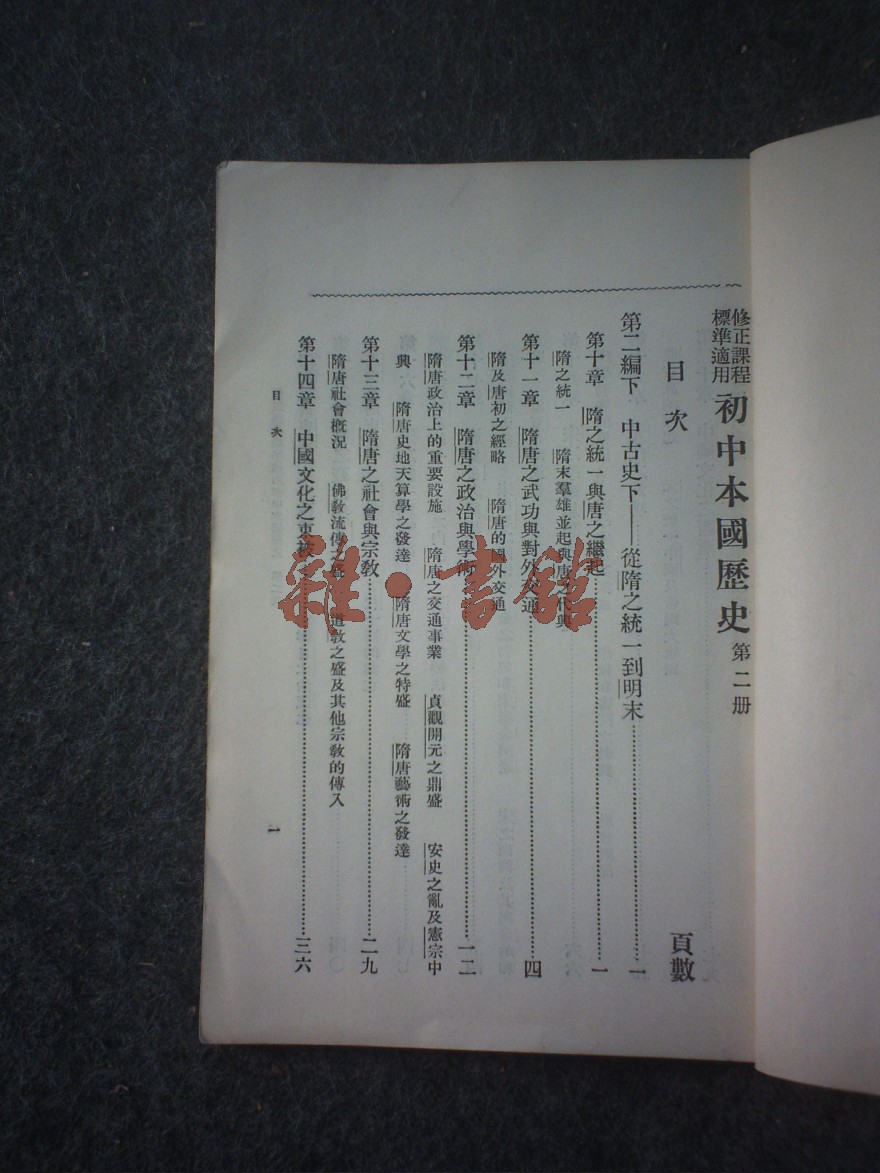 修正課程標準適用 初中本國歷史 第二册
目次 頁數
第二編下 中古史下——從隋之統一到明末……一
第十章 隋之統一與唐之繼起……一
隋之統一 隋末羣雄並起與唐之代興
第十一章 隋唐之武功與對外交通……四
隋及唐初之經略 隋唐的國外交通
第十二章 隋唐之政治與學術……一二
隋唐政治上的重要設施 隋唐之交通事業 貞觀開元之鼎盛 安史之亂及憲宗中
興 隋唐史地天算學之發達 隋唐文學之特盛 隋唐藝術之發達
第十三章 隋唐之社會與宗教……二九
隋唐社會概況 佛教流傳之盛 道教之盛及其他宗教的傳入
第十四章 中國文化之東被……三六
目次 一
雜·書館